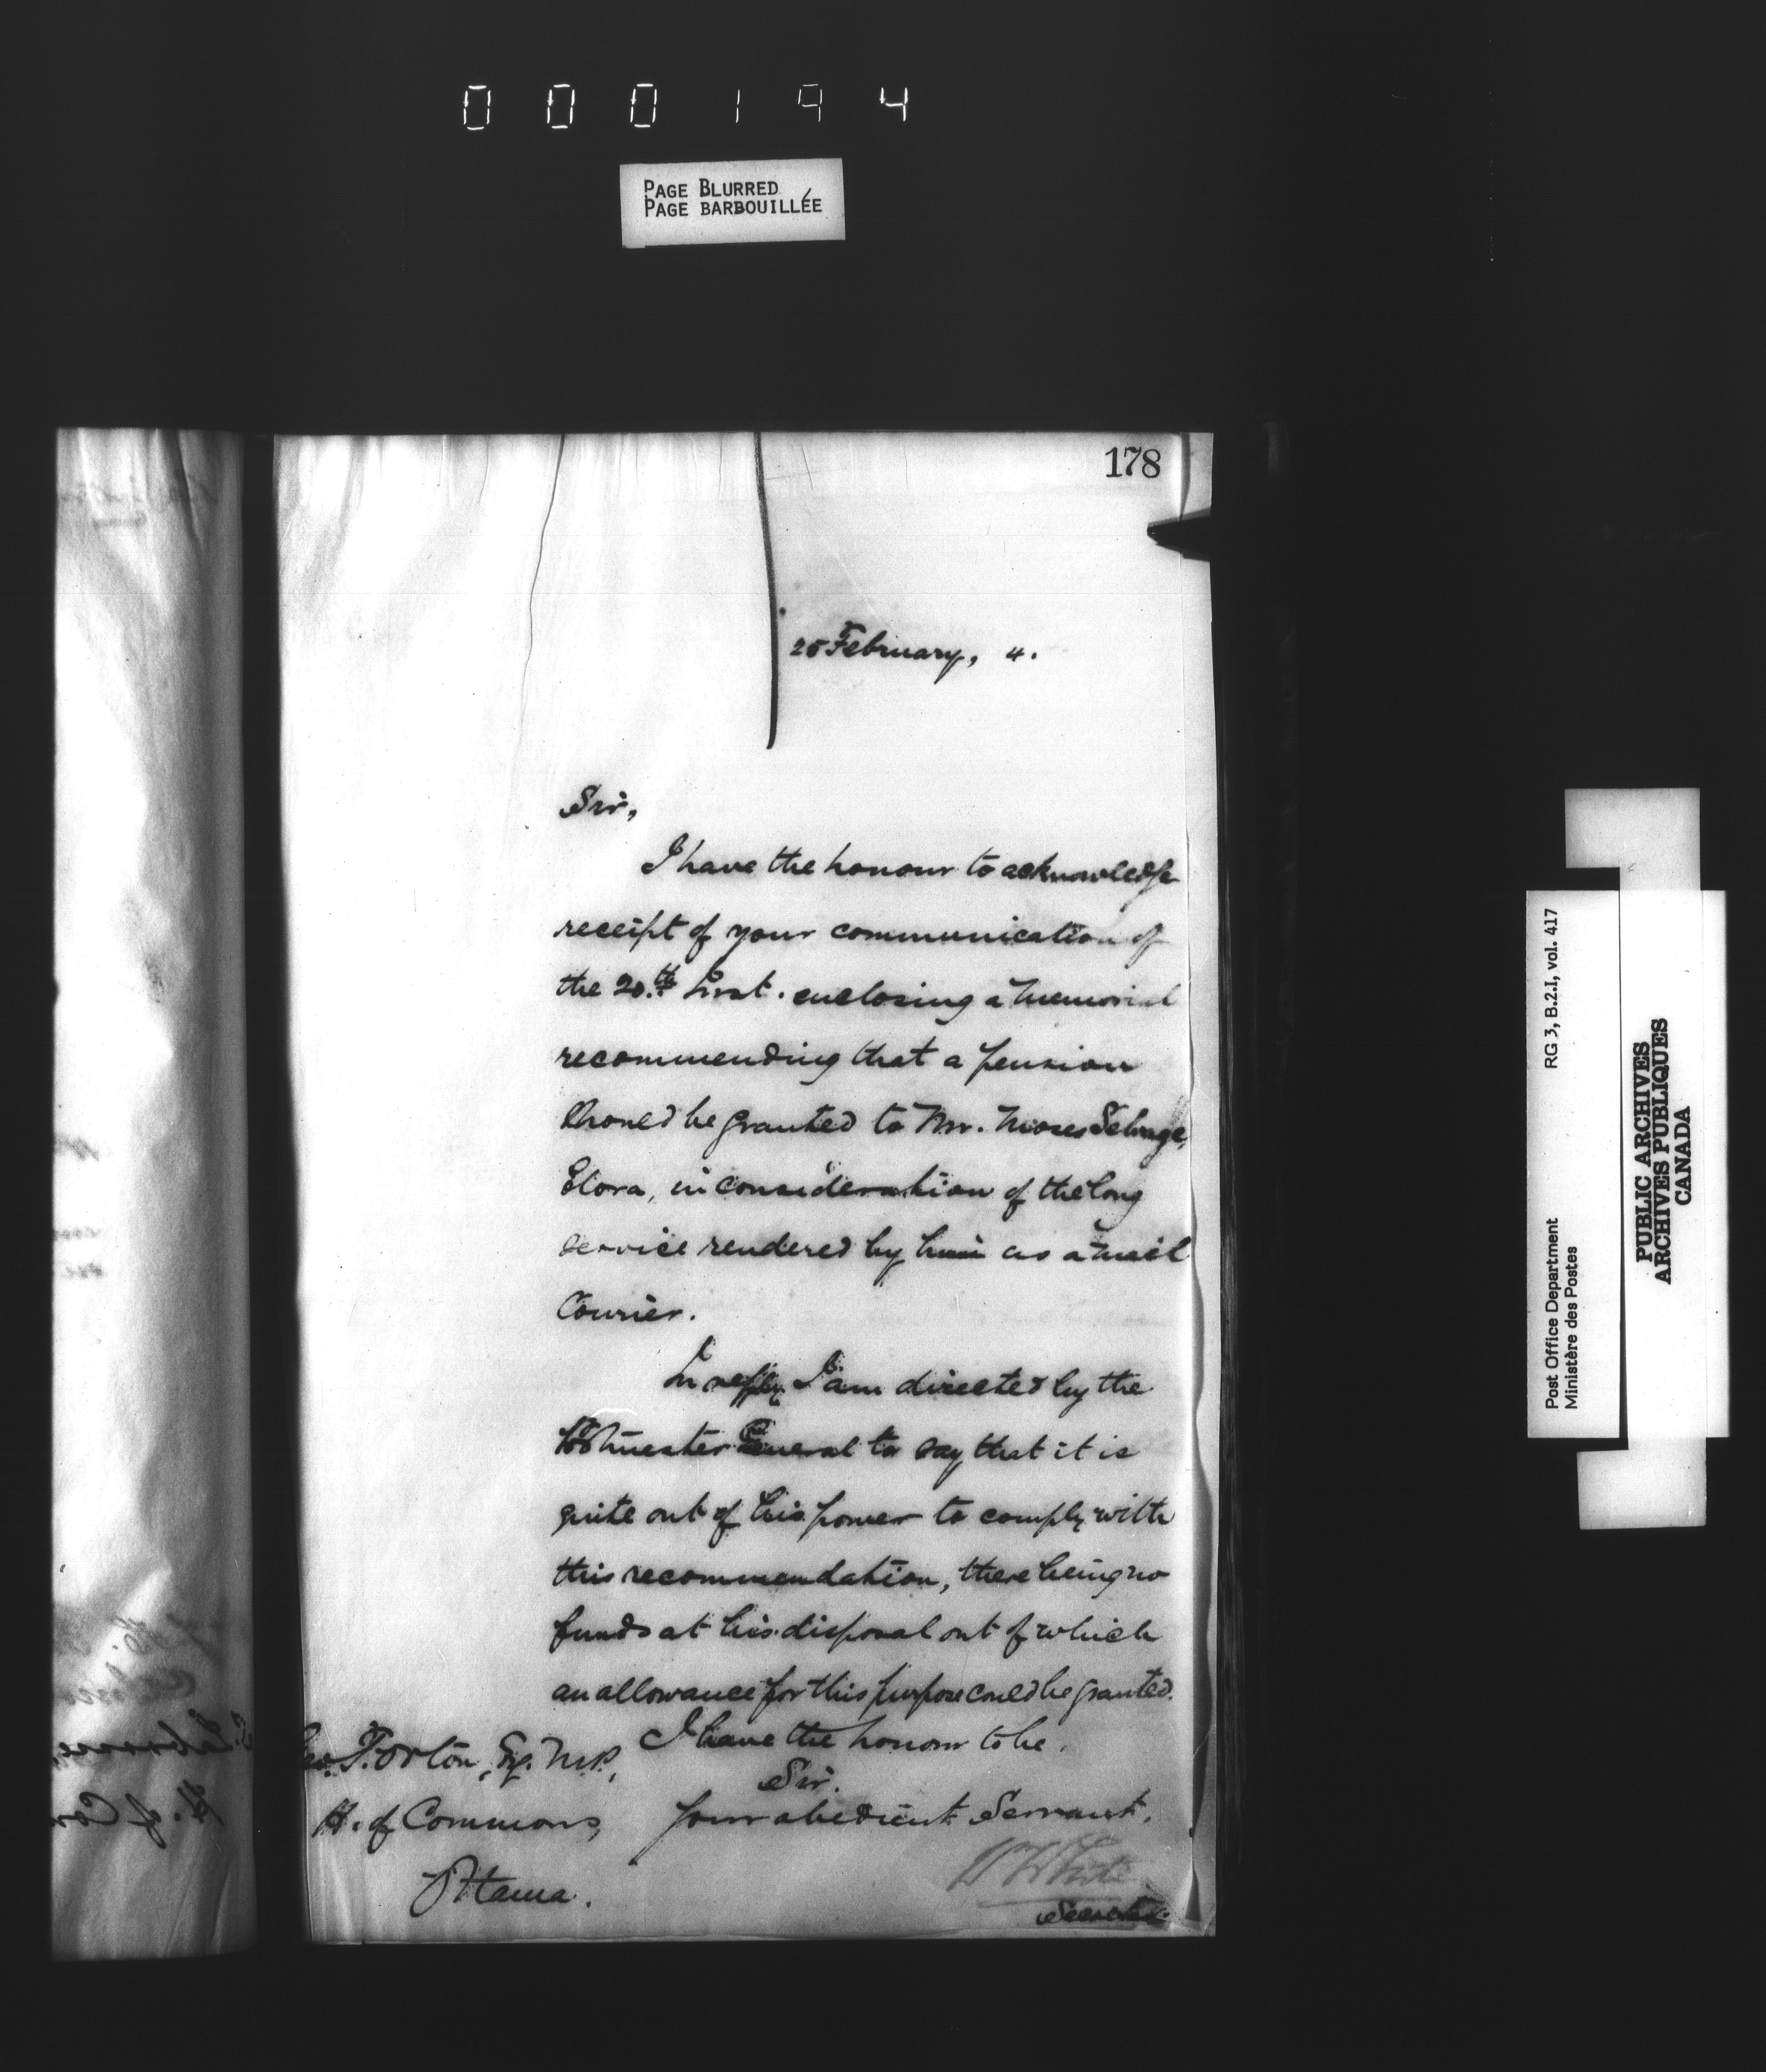 000194
PAGE BLURRED
PAGE BARBOUILLÉE
178
25 February, 4.
Sir,
I have the honour to acknowledge
receipt of your communication of
the 20.th Inst. enclosing a memorial
recommending that a pension
should be granted to Mr. Moses Selvage,
Elora, in consideration of the long
service rendered by him as a mail
Courier.
In reply I am directed by the
Postmaster General to say that it is
quite out of his power to comply with
this recommendation, there being no
funds at his disposal out of which
an allowance for this purpose could be granted.
I have the honour to be,
Sir,
Your obedient Servant,
W White
Secretary.
Geo. T. Orton, Esq. M.P.,
H. of Commons,
Ottawa.
Post Office Department RG 3, B.2.I, vol. 417
Ministère des Postes
PUBLIC ARCHIVES
ARCHIVES PUBLIQUES
CANADA